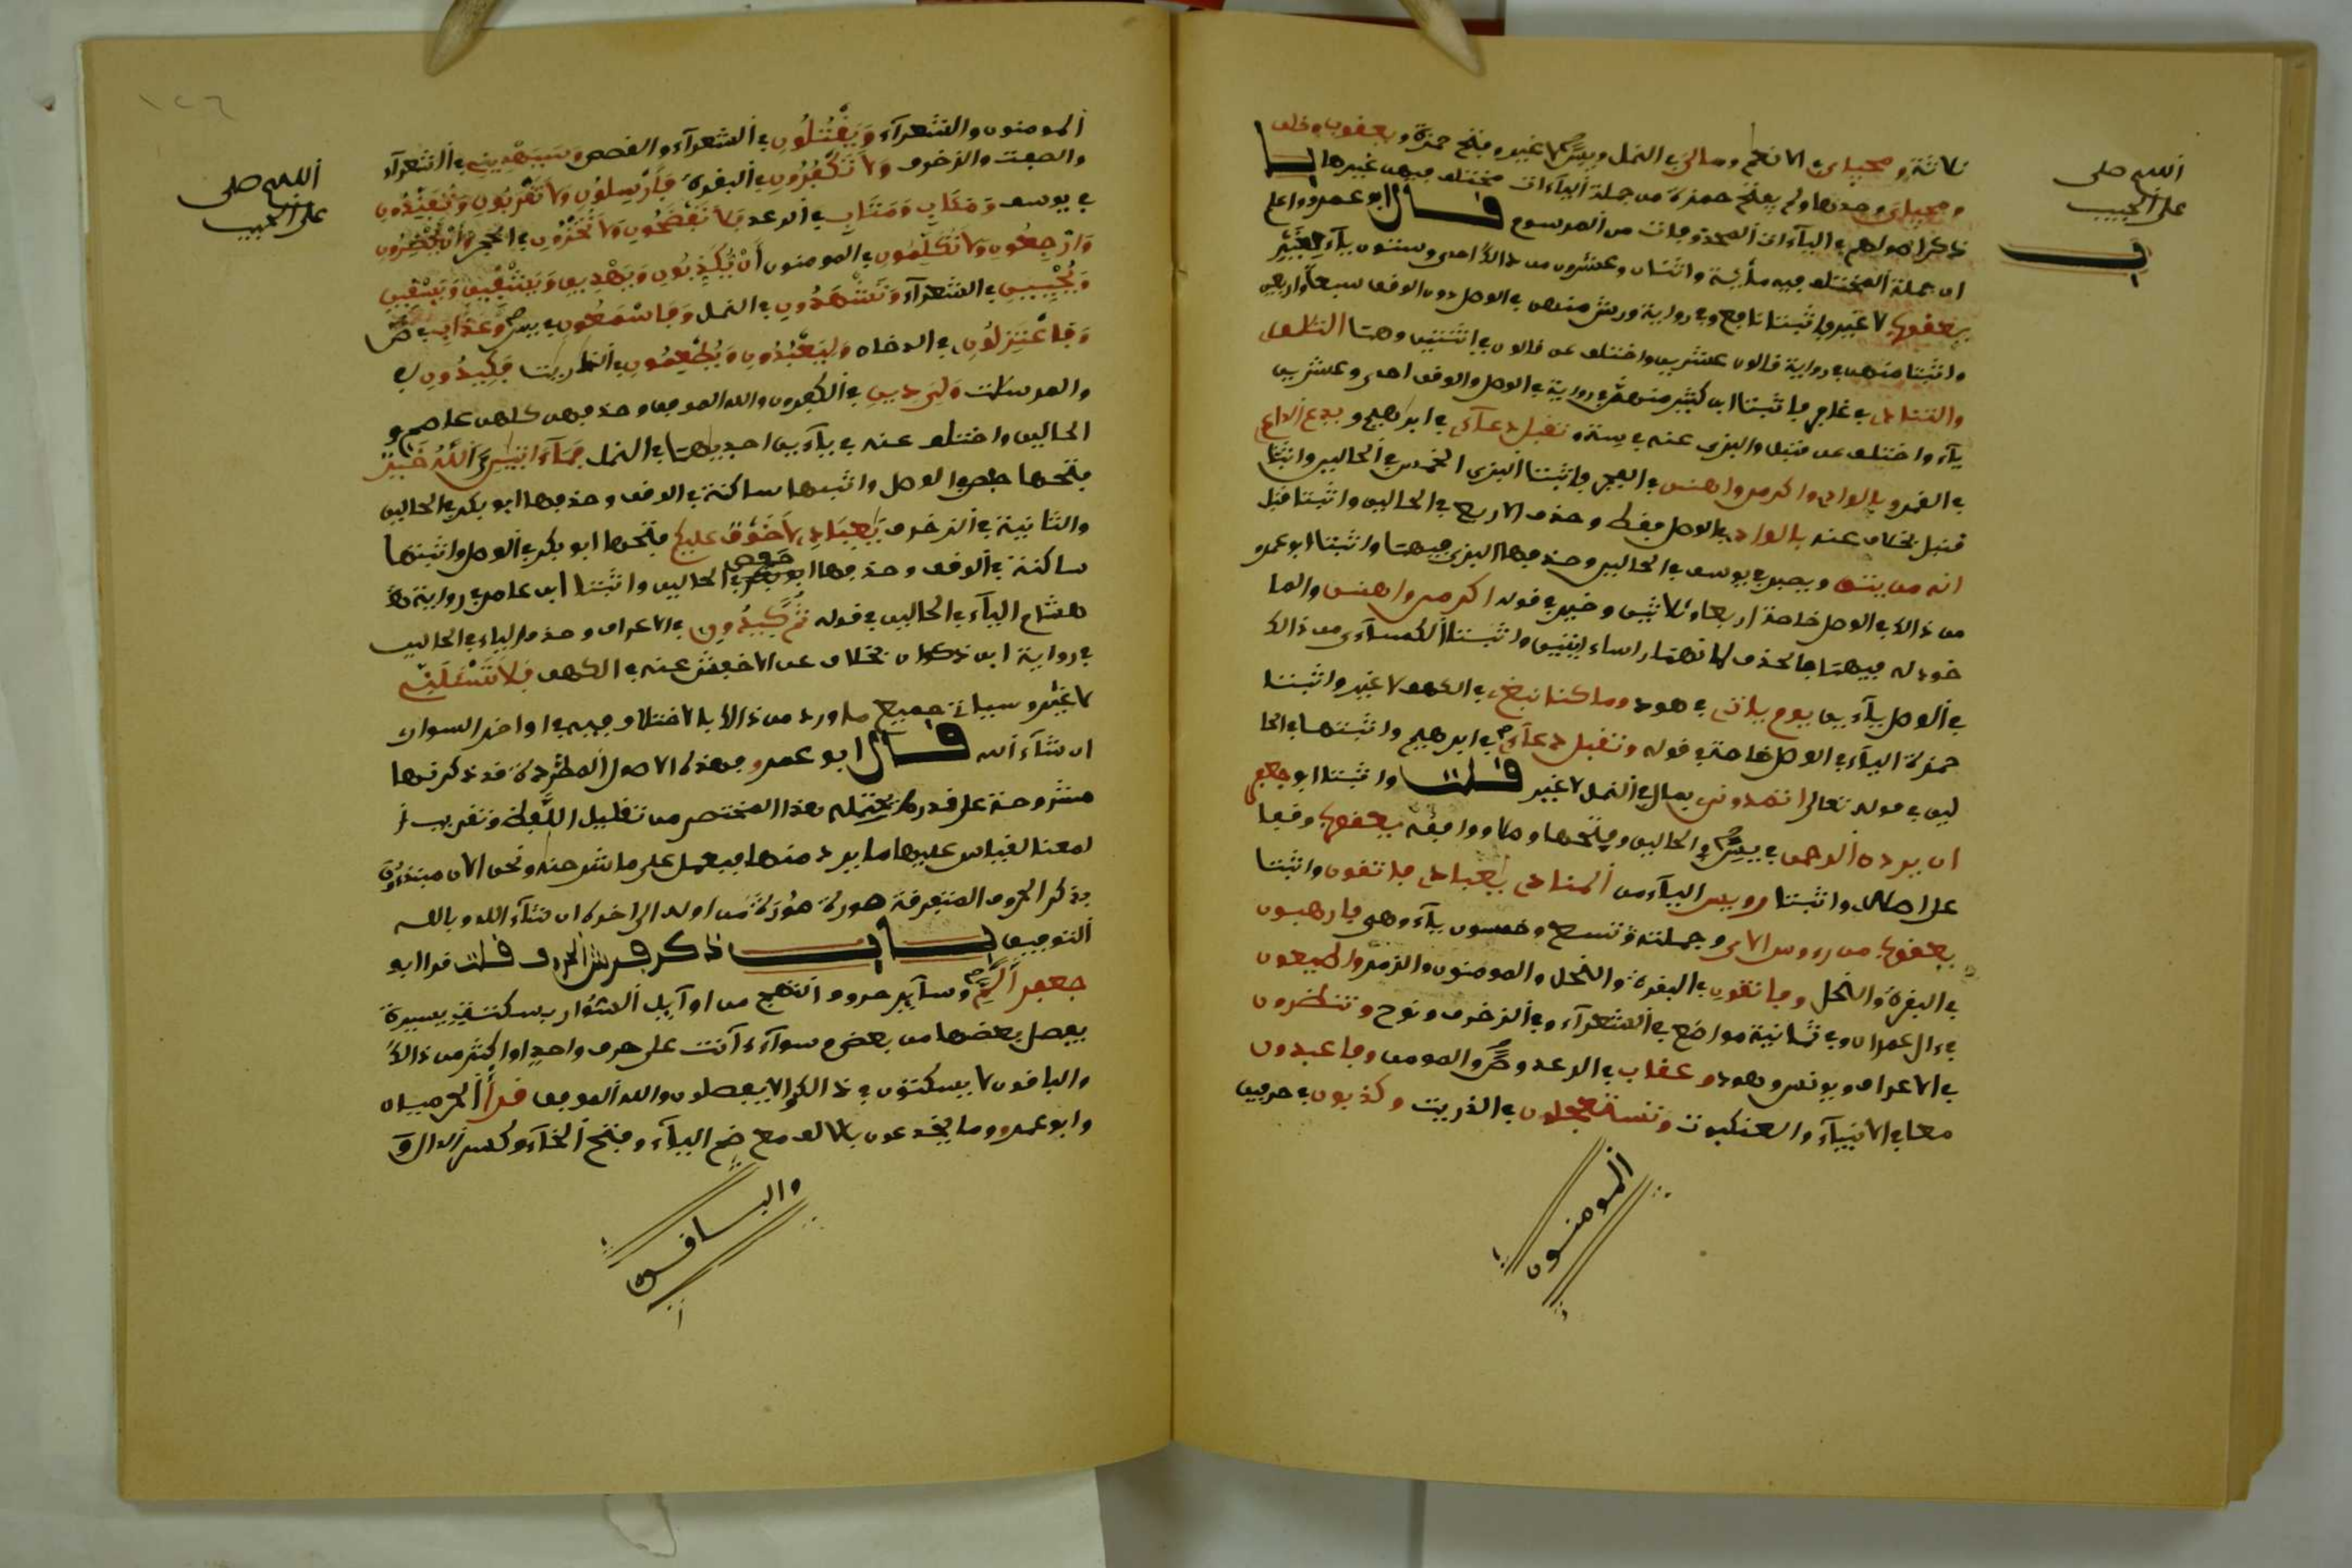 اللهم صل
على الحبيب
ثلاثة ومحياي في الانعم ومالي في النمل ويس لا غير وفتح حمزة ويعقوب وخلف
ومحياي وحدها ولم يفتح حمزة من جملة اليآءات مختلف فيهن غيرها با
ب
ذكر اصولهم في اليآءات المحذوفات من المرسوم قال ابو عمرو واعلم
ان جملة المختلف فيه مائة واثنان وعشرون من ذالك احدى وستون يآء
يعقوب لا غير واثبت نافع في رواية ورش منهن في الوصل دون الوقف سبعا واربعين
واثبت منهن في رواية قالون عشرين واختلف عن قالون في اثنتين وهما التلاق
والتناد في غافر واثبت ابن كثير منهن في رواية في الوصل والوقف احدى وعشرين
يآء واختلف عن قنبل والبزي عنه في ستة وتقبل دعآء في ابراهيم ويدع الداع
في القمر وبالواد واكرمن واهنن في الفجر واثبت البزي الخمس في الحالين واثبت
قنبل بخلاف عنه بالواد في الوصل فقط وحذف الاربع في الحالين واثبت قنبل
انه من يتق ويصبر في يوسف في الحالين وحذفها البزي فيهما واثبت ابو عمرو
من ذالك في الوصل خاصة اربعا وثلاثين وخير في قوله اكرمن واهنن والما
خوذ له فيهما بالحذف لانهما راسا ءايتين واثبت الكسآءي من ذالك
في الوصل يآءين يوم يات في هود وما كنا نبغ في الكهف لا غير واثبت
حمزة اليآء في الوصل خاصة في قوله وتقبل دعآء في ابرهيم واثبتها في الحا
لين في قوله تعالى اتمدونن بمال في النمل لا غير قلت واثبت ابو جعفر
ان يردن الرحمن في يس في الحالين وفتحها وصلا ووافقه يعقوب وقفا
على اصله واثبت رويس اليآء من المنادى يعباد فاتقون واثبت
يعقوب من رءوس الاي وجملته تسع وخمسون يآء وهي فارهبون
في البقرة والنحل وفاتقون في البقرة والنحل والمومنون والزمر واطيعون
في ءال عمران وفي ثمانية مواضع في الشعرآء وفي الزخرف ونوح وتنظرون
في الاعراف ويونس وهود وعقاب في الرعد وص والمومن وفاعبدون
معا في الانبيآء والعنكبوت وتستعجلون في الذريت وكذبون في حرفين
المومنون
اللهم صل
على الحبيب
المومنون والشعرآء ويقتلون في الشعرآء والقصص وسيهدين في الشعرآء
والصفت والزخرف ولا تكفرون في البقرة فارسلون ولا تقربون وتفندون
في يوسف ومئاب ومتاب في الرعد فلا تفضحون ولا تخزون في الحجر وان يحضرون
وارجعون ولا تكلمون في المومنون ان يكذبون ويهدين ويشفين ويسقين
ويحيين في الشعرآء وتشهدون في النمل وفاسمعون في يس وعذاب في ص
وفاعتزلون في الدخان وليعبدون ويطعمون في الذاريت فكيدون في
والمرسلت ولي دين في الكفرون والله الموفق وحذفهن كلهن عاصم في
الحالين واختلف عنه في يآءين احديهما في النمل فمآءاتين الله خير
فتحها حفص في الوصل واثبتها ساكنة في الوقف وحذفها ابو بكر في الحالين
والثانية في الزخرف يعباد لا خوف عليكم فتحها ابو بكر في الوصل واثبتها
ساكنة في الوقف وحذفها حفص في الحالين واثبت ابن عامر في رواية
هشام اليآء في الحالين في قوله ثم كيدون في الاعراف وحذف اليآء في الحالين
في رواية ابن ذكوان بخلاف عن الاخفش عنه في الكهف فلا تسئلني
لا غير وسياتي جميع ما ورد من ذالك بالاختلاف فيه في اواخر السور
ان شآء الله قال ابو عمرو فهذه الاصول المطردة قد ذكرتها
مشروحة على قدر ما يحتمله هذا المختصر من تقليل اللفظ وتقريب ا
لمعنا ليقاس عليها ما يرد منها فيعمل على ما شرحنه ونحن الان مبتدءون
بذكر الحروف المتفرقة سورة سورة من اوله الى اخره ان شآء الله وبالله
التوفيق باب ذكر فرش الحروف قلت قرا ابو
جعفر الم وسآير حروف التهج من اوآيل السور بسكتة يسيرة
يفصل بعضها من بعض وسوآء كانت على حرف واحد او اكثر من ذالك
والباقون لا يسكتون في ذالك ولا يفصلون والله الموفق قرأ الحرميان
وابو عمرو وما يخدعون بالالف مع ضم اليآء وفتح الخآء وكسر الدال و
والباقون